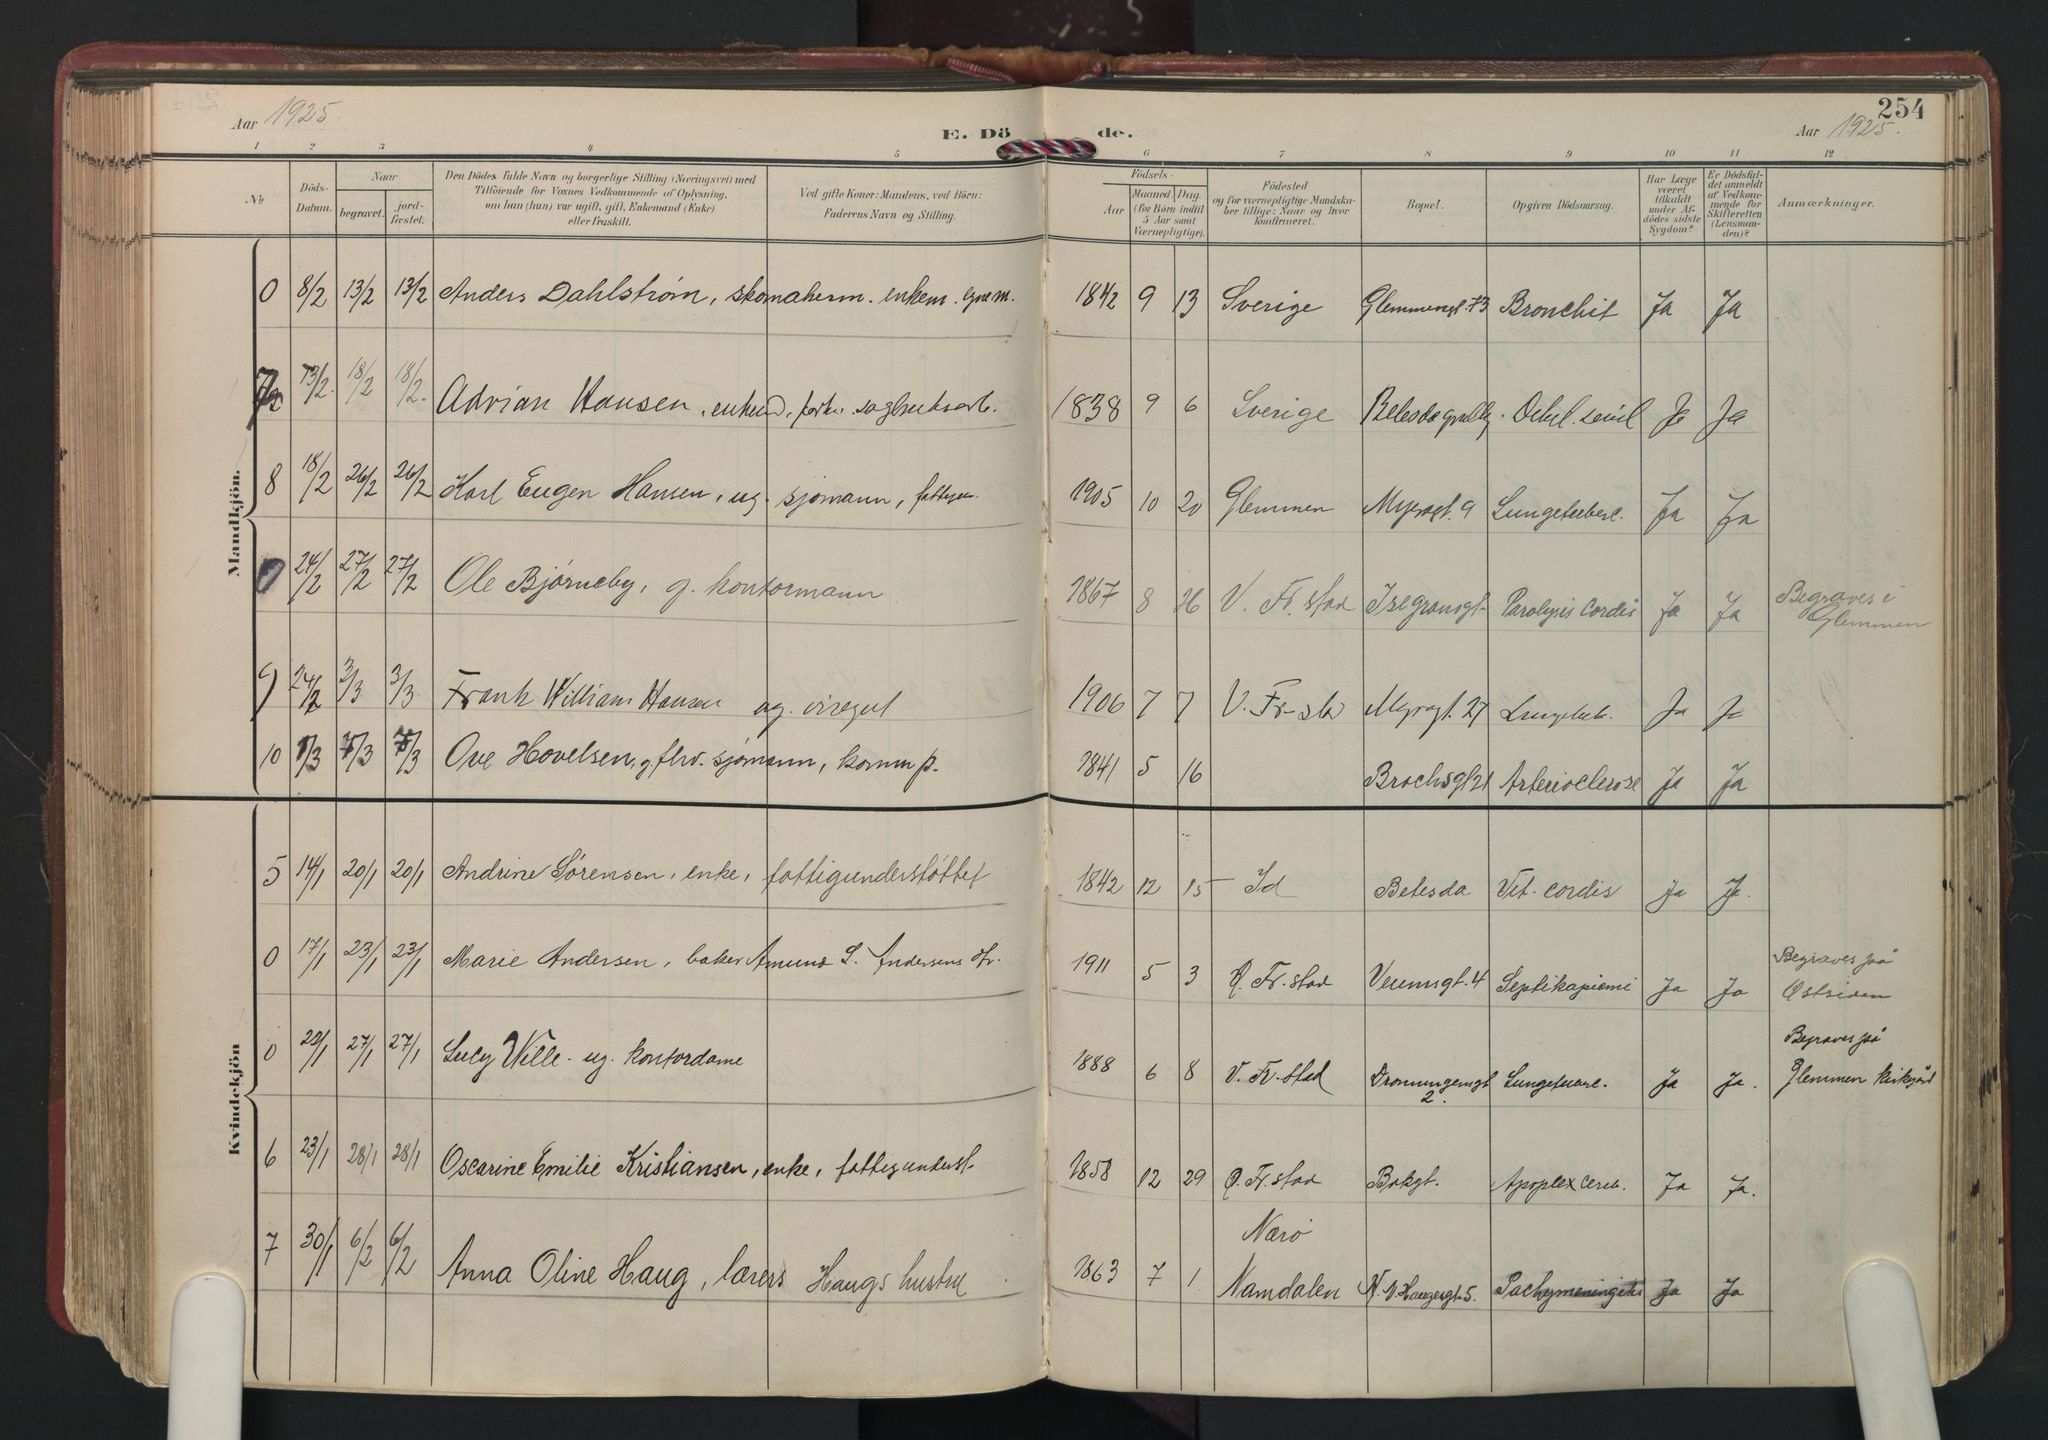 254
Aar 1925.
E. Dö de.
Aar 1925.
1 2 3 4 5 6 7 8 9 10 11 12
No
Döds-Datum.
Naar
begravet.
jord-fæstet.
Den Dödes fulde Navn og borgerlige Stilling (Næringsvei) med
Tilföiende for Voxnes Vedkommende af Oplysning,
om han (hun) var ugift, gift, Enkemand (Enke)
eller fraskilt.
Ved gifte Koner: Mandens, ved Börn:
Faderens Navn og Stilling.
Födsels-
Aar
Maaned. Dag.
(for Börn indtil
5 Aar samt
Værnepligtige).
Födested
og for værnepligtige Mandsku-
ber tillige: Naar og hvor
konfirmeret.
Bopæl.
Opgiven Dödsaarsag.
Har Læge
været
tilkaldt
under Af-
dödes sidste
Sygdom?
Er Dödsfal-
det anmeldt
af Vedkom-
mende for
Skifteretten
(Lensman-
den)?
Anmærkninger.
Mandkjön.
0 8/2 13/2 13/2 Anders Dahlstrøm, skomakerm. enkem. 1842 9 13 Sverige Glemmengt. 73 Bronchit Ja Ja
13/2. 18/2 18/2. Adrian Hansen, 1838 9 6 Sverige Debil. senil Ja Ja
8 18/2 26/2 26/2 Karl Eugen Hansen, ug. sjømann, 1905 10 20 Glemmen Myragt. 9 Lungetuberc. Ja Ja
0 24/2 27/2 27/2 Ole Bjørneby, g. kontormann 1867 8 26 V. Fr. stad Isegransgt. Paralysis cordis Ja Ja Begraves i
Glemmen
9 24/2 3/3 3/3 Frank William Hansen ug. visegut 1906 7 7 V. Fr-stad Myragt. 27 Ja Ja
10 Ove Hovelsen, g. fhv. sjømann, komm p. 1841 5 16 Brochsgt 21 Arterioclerose Ja Ja
Kvindekjön
5 14/1 20/1 20/1 Andrine Sørensen, enke, fattigunderstøttet 1842 12 15 Id Betesda Vit. cordis Ja Ja.
0 17/1 23/1 23/1 Marie Andersen, baker Amund S. Andersens dtr. 1911 5 3 Ø. Fr. stad Veumsgt. 4 Septikapiemi Ja Ja Begraves på
Østsiden
0 22/1 27/1 27/1 Lucy Wille. ug. kontordame 1888 6 8 V. Fr. stad Dronningensgt
2. Lungetuberc. Ja Ja. Begraves på
Glemmen kirkgård
6 23/1 28/1 28/1 Oscarine Emilie Kristiansen, enke, fattigunderst. 1858 12 29 Ø. Fr. stad Bakgt. Apoplex cereb. Ja Ja.
7 30/1 6/2 6/2 Anna Oline Haug, lærers Haugs hustru 1863 7 1 Nærø
Namdalen N. V. Haugesgt. 5. Pachymeningitis Ja Ja